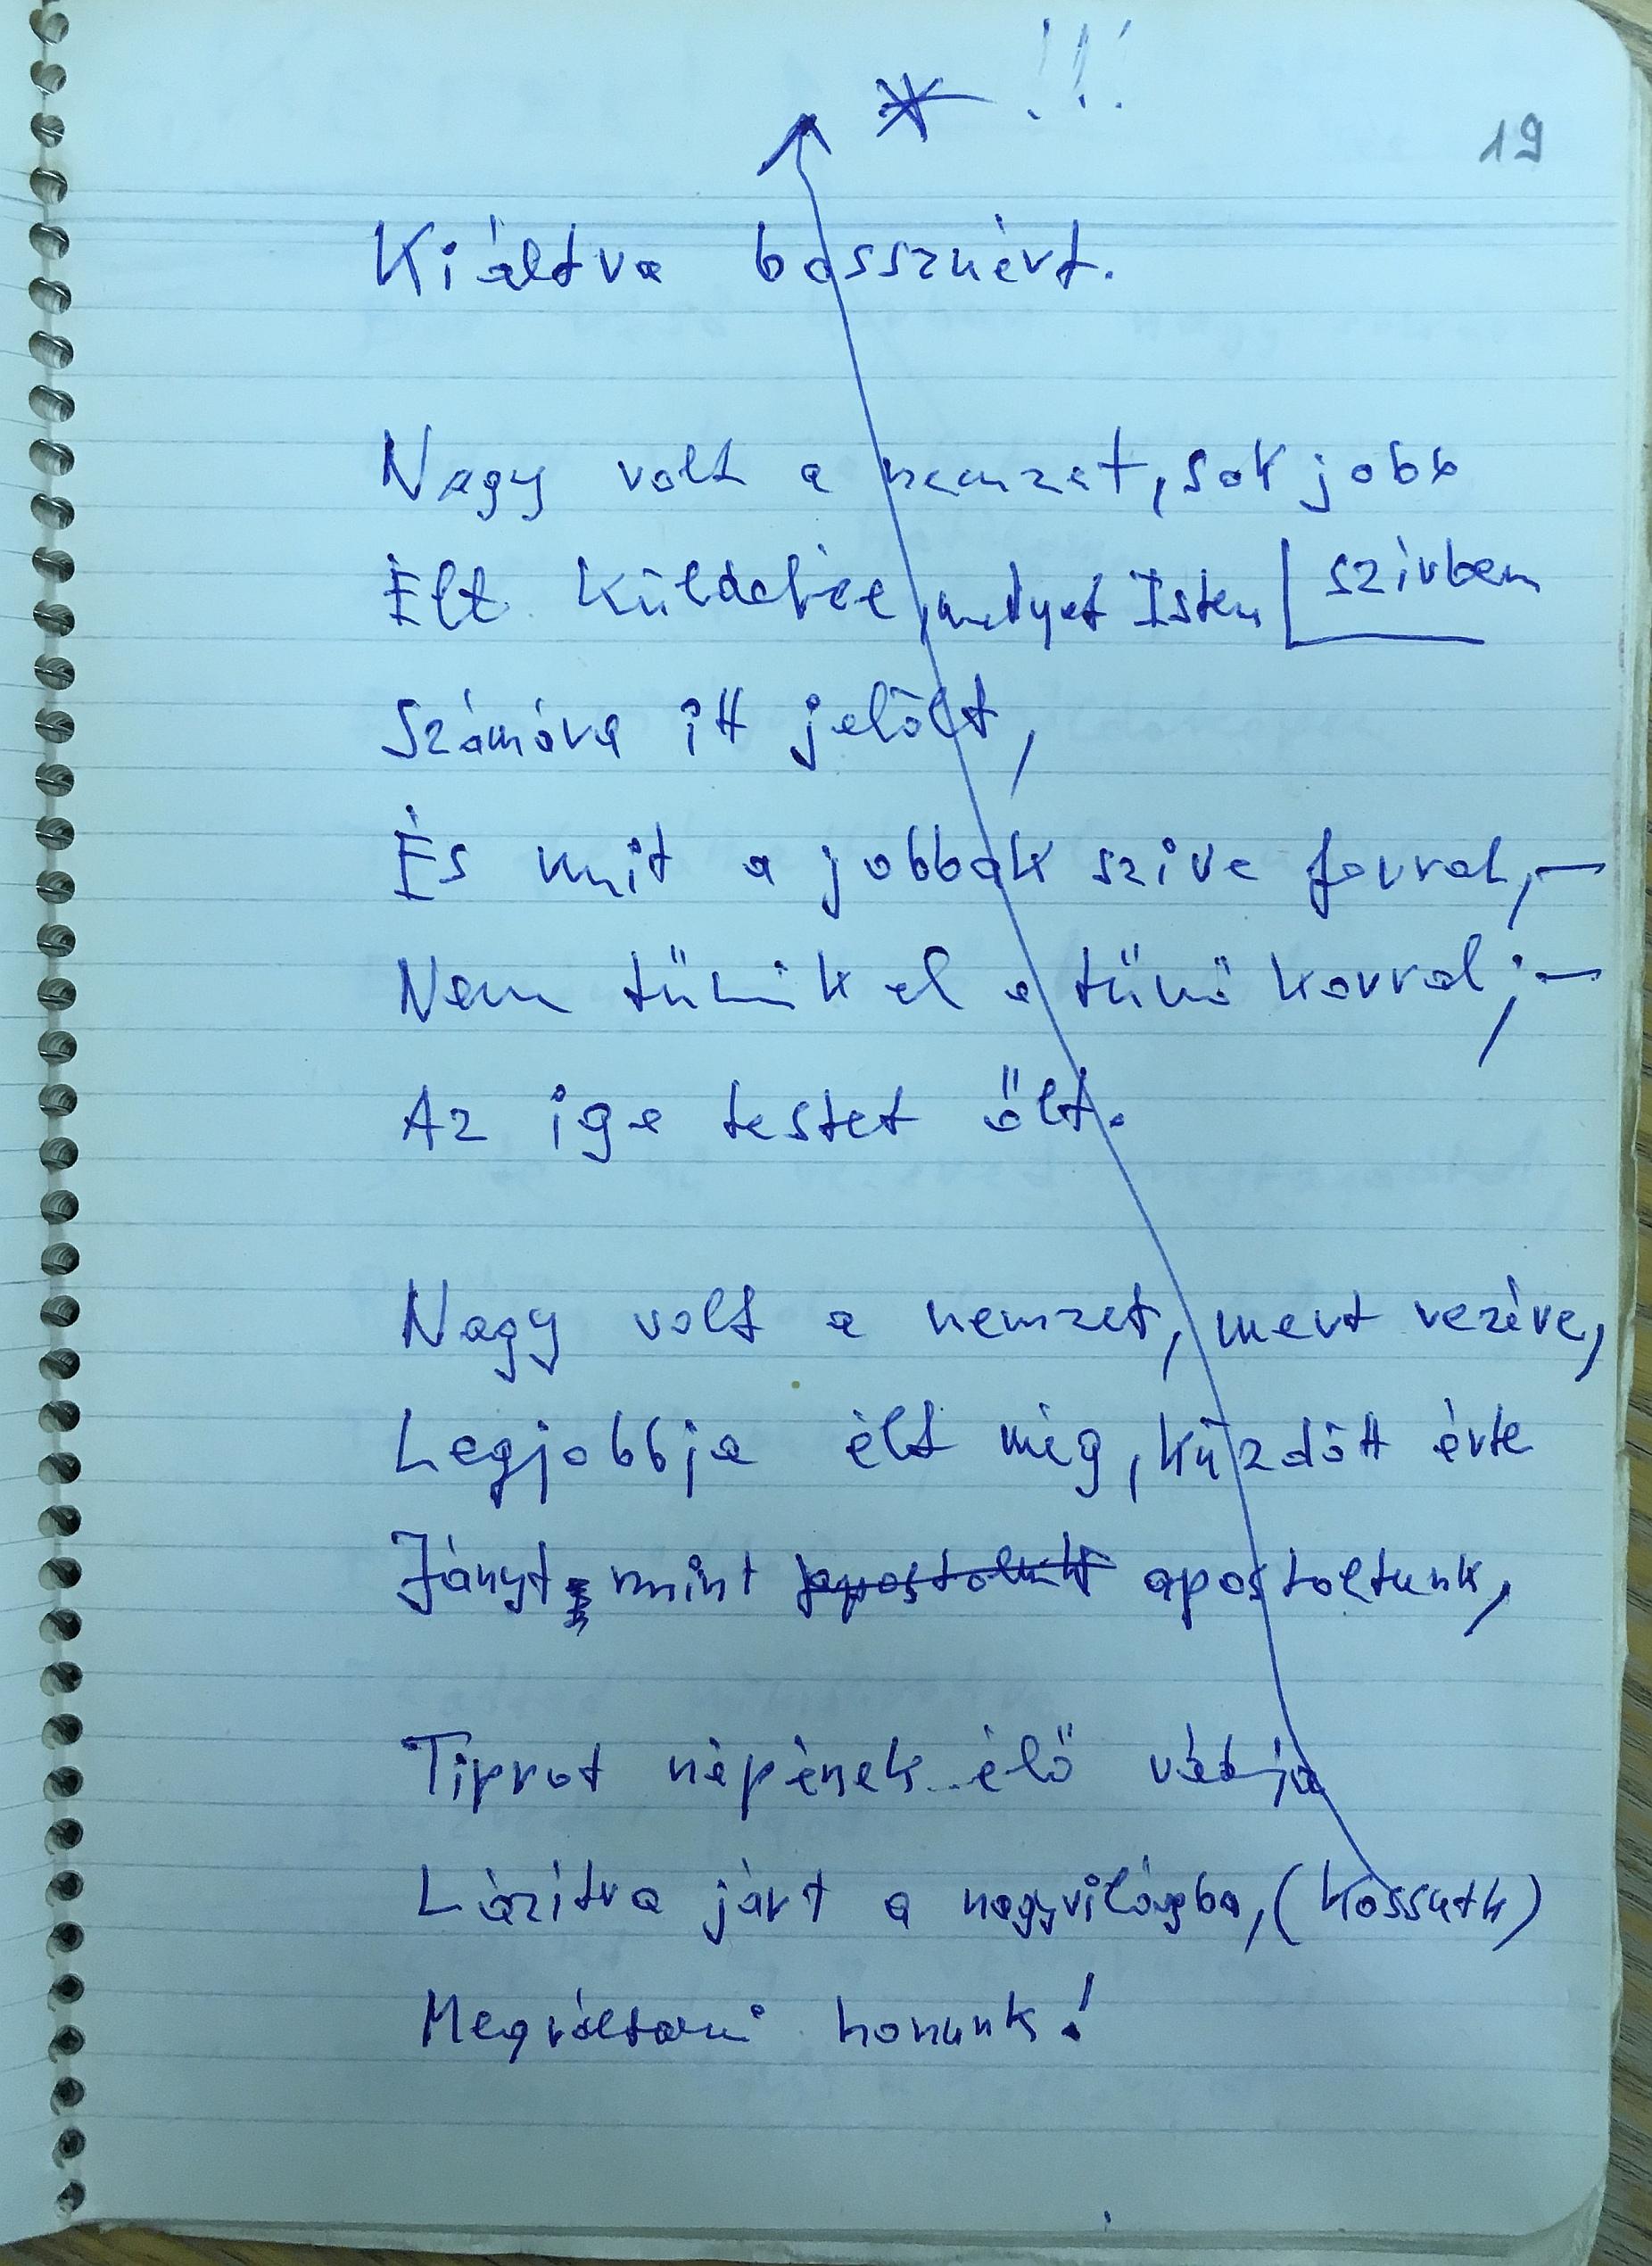 * !!!
19
Kiáltva bosszúért.
Nagy volt a nemzet, sok jobb
szívben
Élt küldetése, melyet Isten
Számára itt jelölt,
És mit a jobbak szive forral, –
Nem tűnik el a tűnő korral; –
Az ige testet ölt.
Nagy volt a nemzet, mert vezére,
Legjobbja élt még, küzdött érte
mint apostoltunk,
Tiprot népének élő vádja
Lázítva járt a nagyvilágba, (Kossuth)
Megváltani honunk!